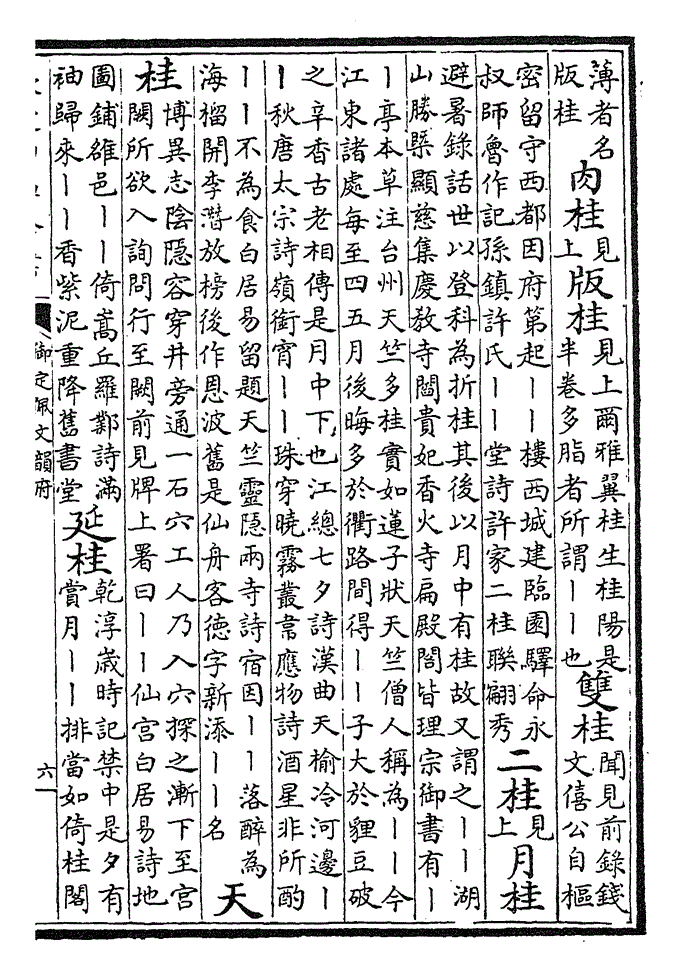 薄者名版桂肉桂見上版桂見上爾雅翼桂生桂陽是半卷多脂者所謂丨丨也雙桂聞見前錄錢文僖公自樞
密留守西都因府第起丨丨樓西城建臨園驛命永叔師魯作記孫鎮許氏丨丨堂詩許家二桂聯翩秀二桂見上月桂
避暑錄話世以登科為折桂其後以月中有桂故又謂之丨丨湖山勝槩顯慈集慶教寺閻貴妃香火寺扁殿閣皆理宗御書有丨
丨亭本草注台州天竺多桂實如蓮子狀天竺僧人稱為丨丨今江東諸處每至四五月後晦多於衢路間得丨丨子大於貍豆破
之辛香古老相傳是月中下也江總七夕詩漢曲天榆冷河邊丨丨秋唐太宗詩嶺銜宵丨丨珠穿曉霧叢韋應物詩酒星非所酌
丨丨不為食白居易留題天竺靈隱兩寺詩宿因丨丨落醉為海榴開李潛放榜後作恩波舊是仙舟客德字新添丨丨名天
桂博異志陰隱客穿井旁通一石穴工人乃入穴探之漸下至宮闕所欲入詢問行至闕前見牌上署曰丨丨仙宮白居易詩地
圖鋪雒邑丨丨倚嵩丘羅鄴詩滿袖歸來丨丨香紫泥重降舊書堂延桂乾淳歲時記禁中是夕有賞月丨丨排當如倚桂閣
御定佩文韻府
六